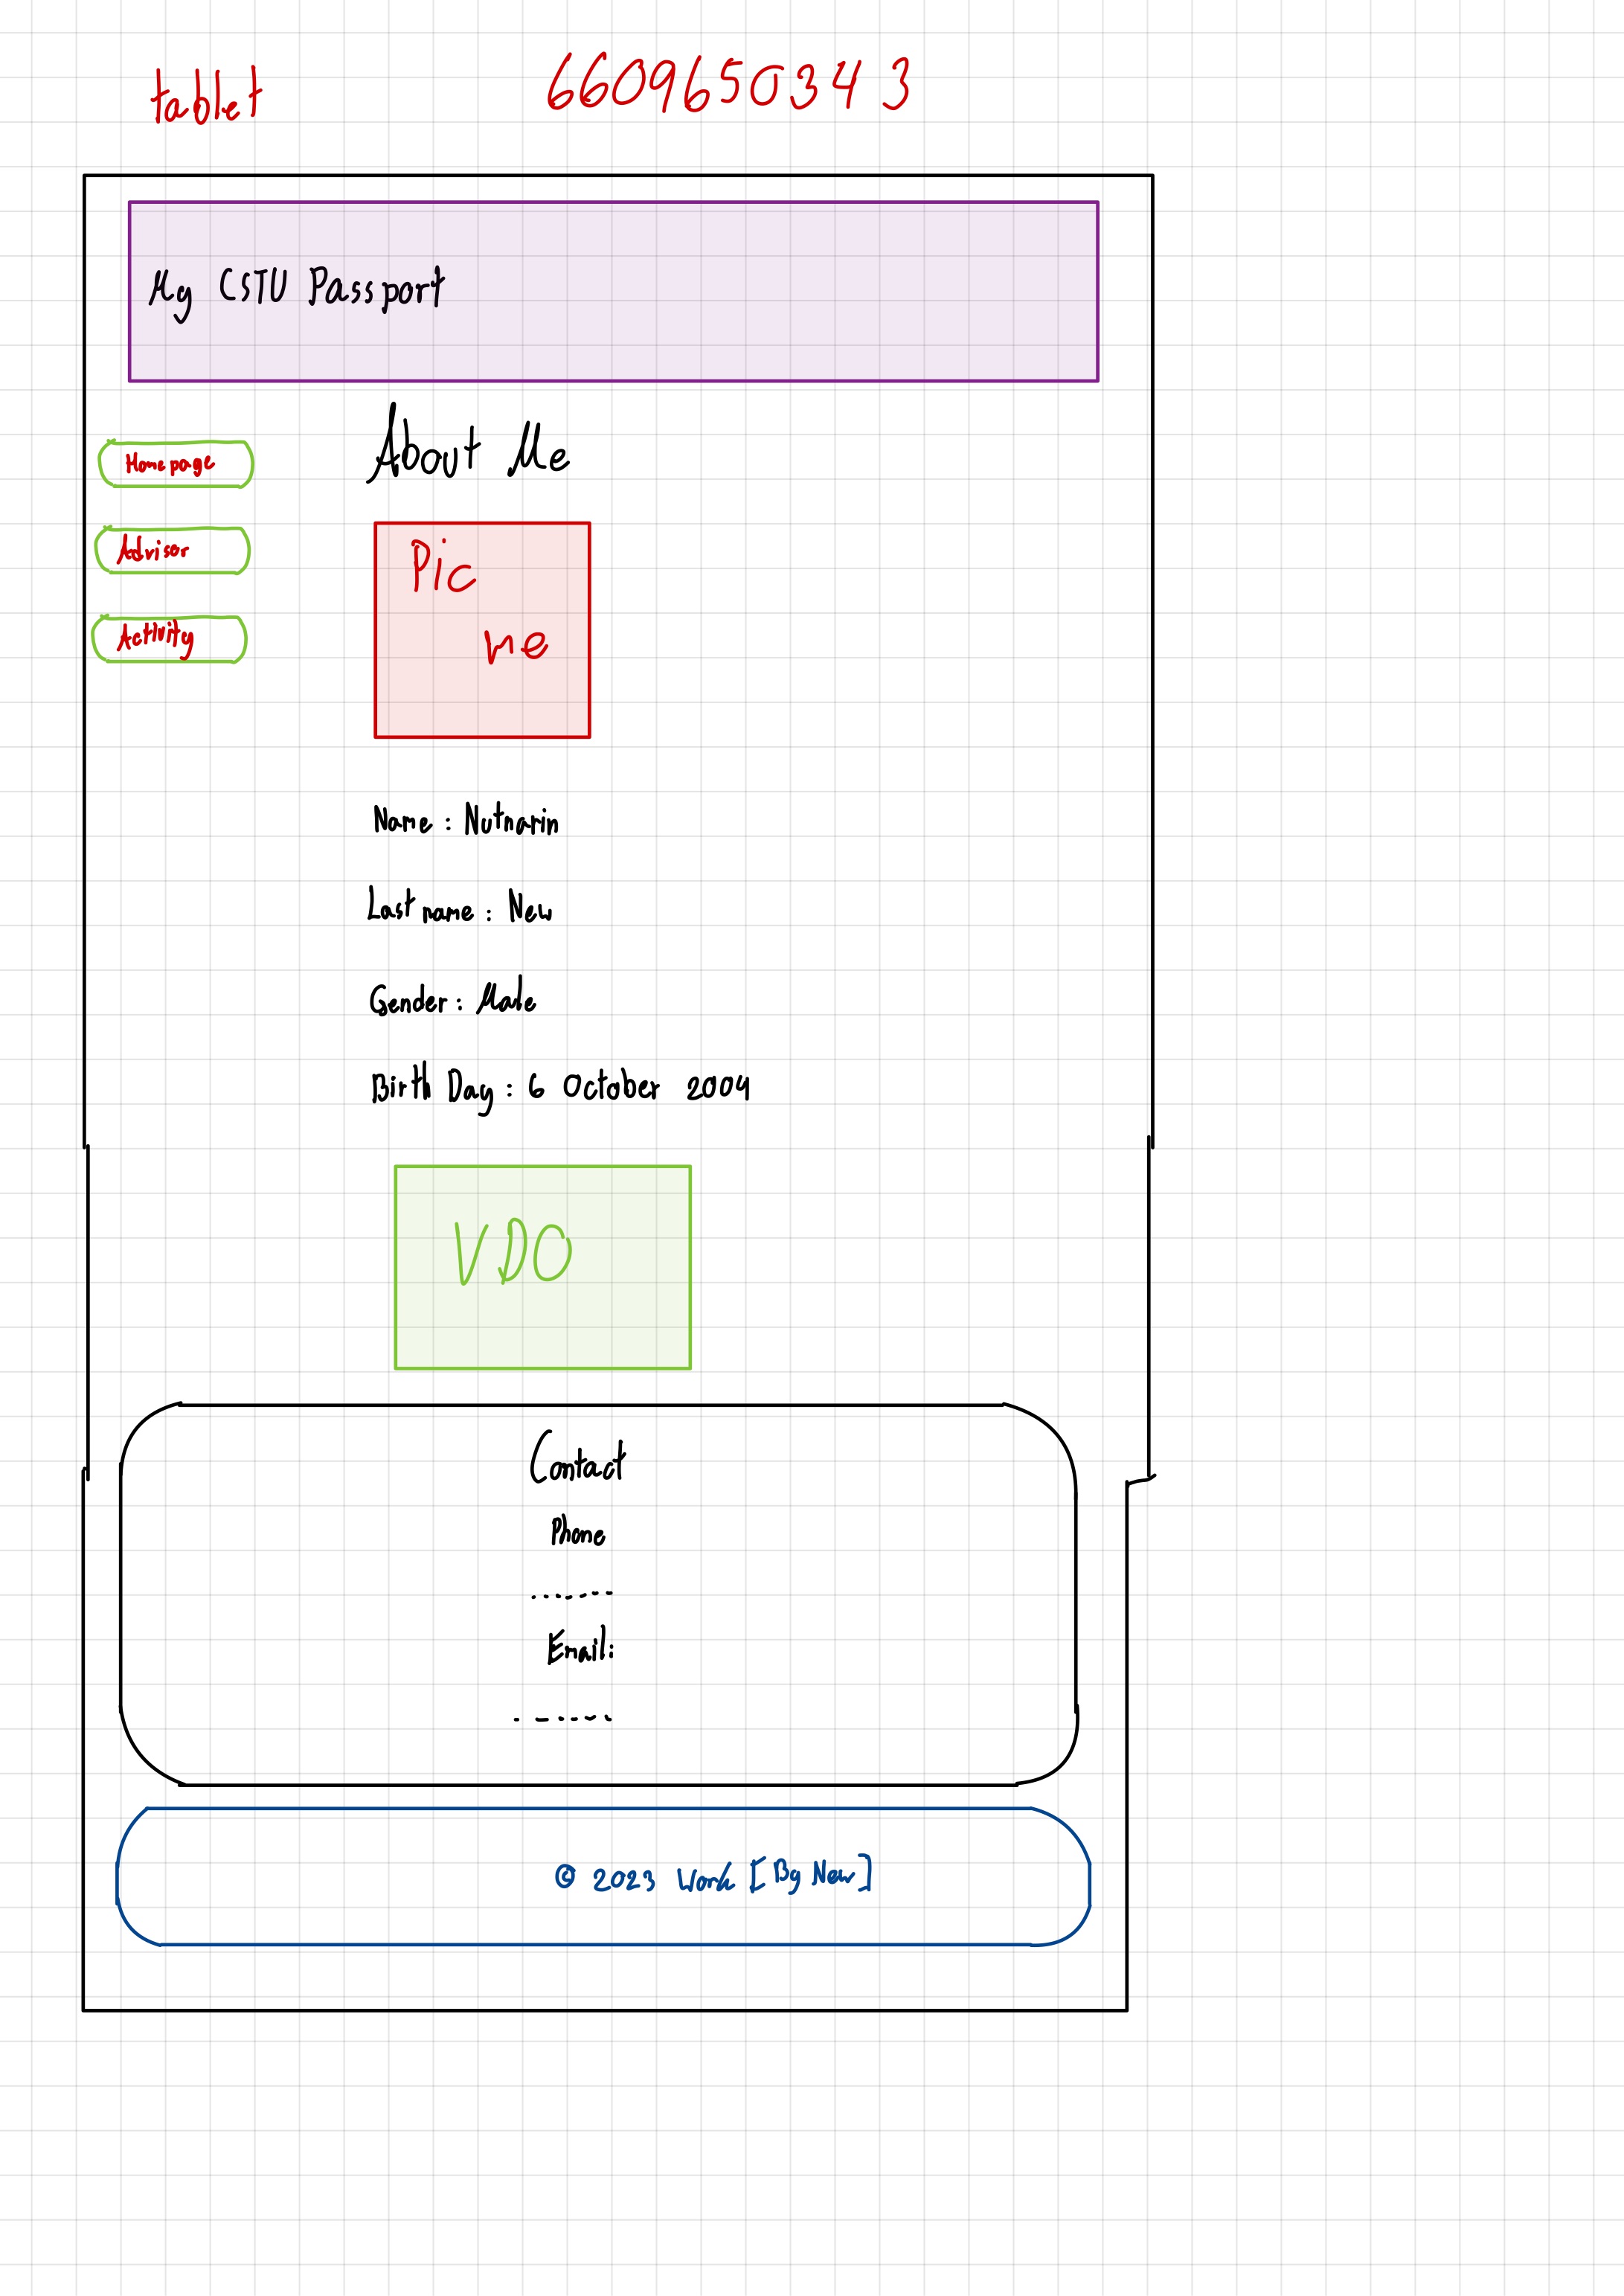 tablet 6609650343
My CSTU Passport
About Me
Homepage
Advisor
Activity
Pic
me
Name : Nutnarin
Last name : New
Gender : Male
Birth Day : 6 October 2004
VDO
Contact
Phone
.......
Email:
.......
© 2023 Work [By New]